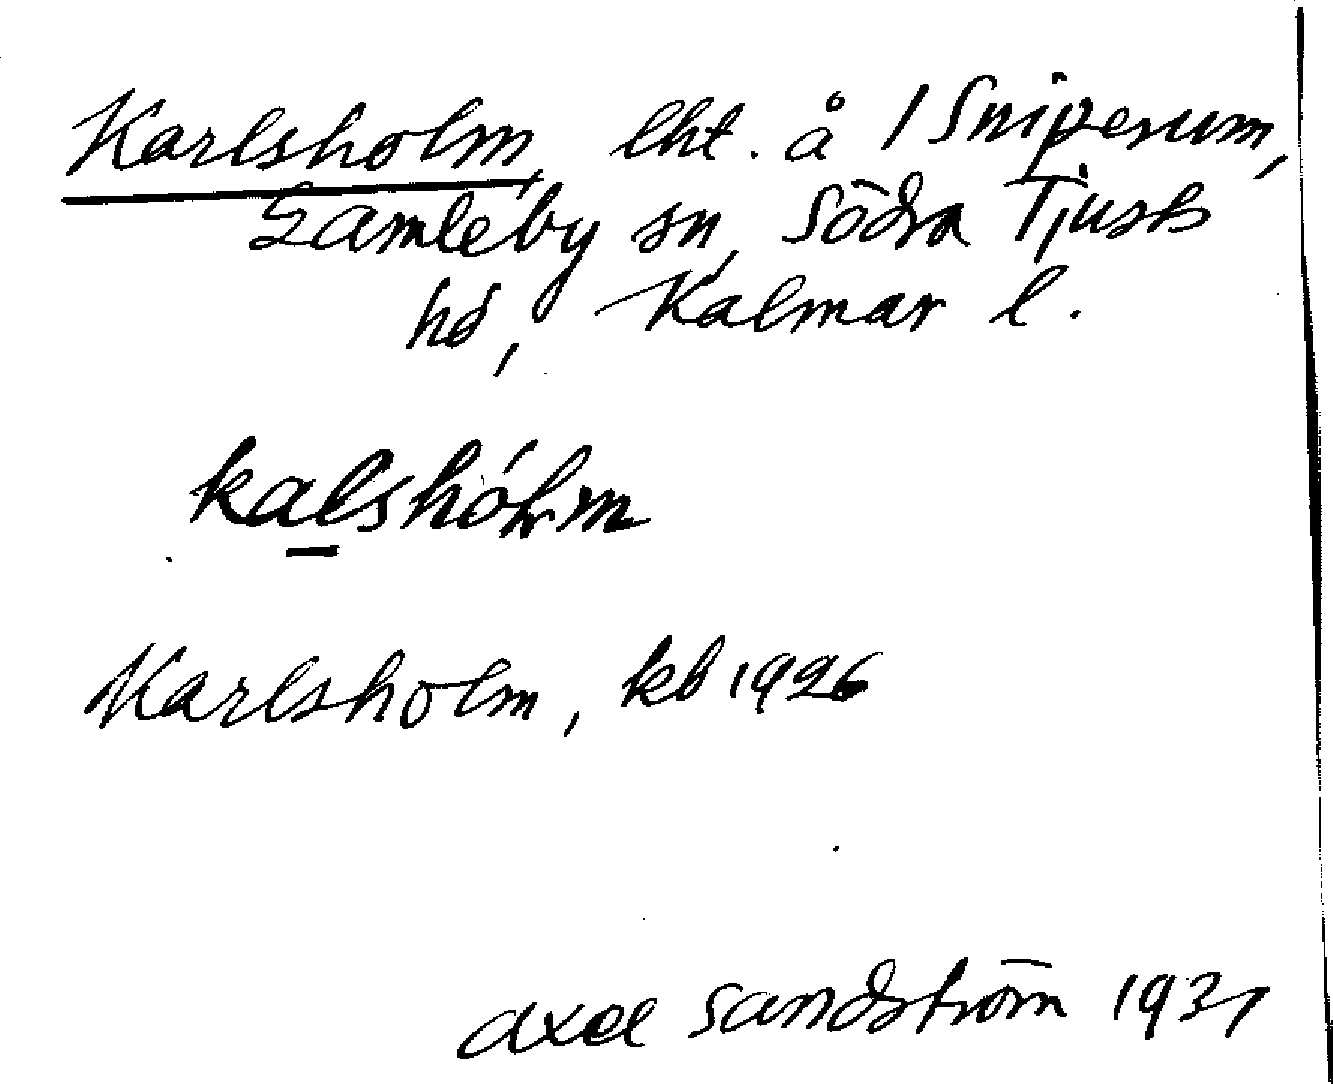 Karlsholm, lht. å 1 Sniperum,
Gamleby sn, Södra Tjusts
hd, Kalmar l.
kalshólm
Karlsholm, kb 1926
Axel Sandström 1937